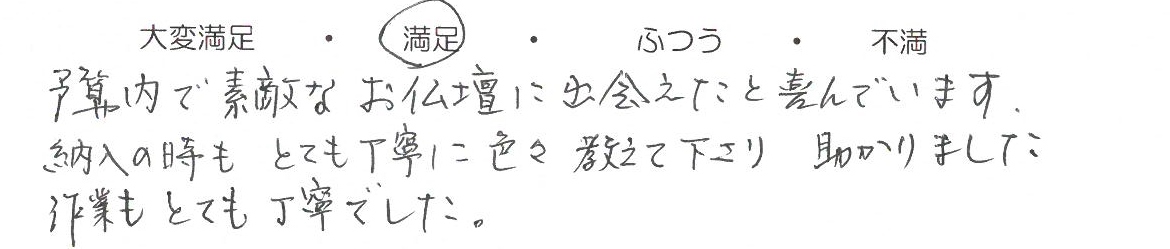 大変満足 ・ 満足 ・ ふつう ・ 不満
予算内で素敵なお仏壇に出会えたと喜んでいます.
納入の時も とても丁寧に色々教えて下さり 助かりました
作業もとても丁寧でした。